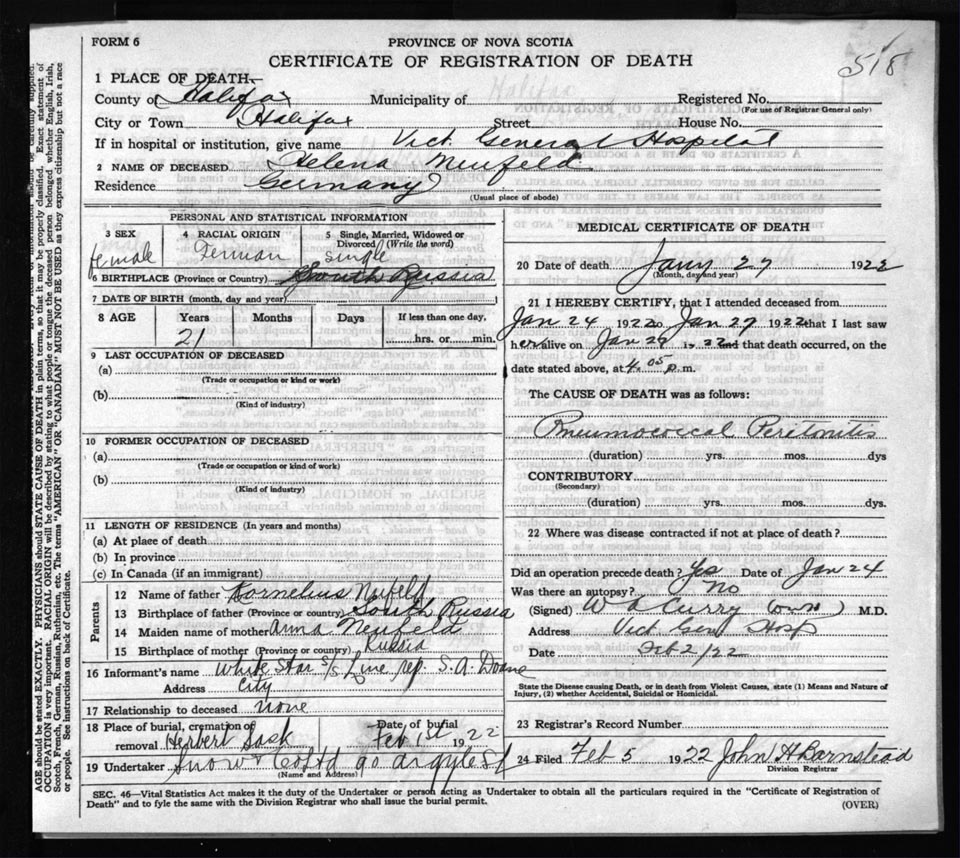 FORM 6
PROVINCE OF NOVA SCOTIA
CERTIFICATE OF REGISTRATION OF DEATH
518
1 PLACE OF DEATH—
County of Halifax Municipality of Registered No.
(For use of Registrar General only)
City or Town Halifax Street House No.
If in hospital or institution, give name Vict. General Hospital
2 NAME OF DECEASED Helena Neufeld
Residence Germany
(Usual place of abode)
PERSONAL AND STATISTICAL INFORMATION
3 SEX 4 RACIAL ORIGIN 5 Single, Married, Widowed or Divorced (Write the word)
female German Single
6 BIRTHPLACE (Province or Country) South Russia
7 DATE OF BIRTH (month, day and year)
8 AGE Years Months Days If less than one day,
21 hrs. or min.
9 LAST OCCUPATION OF DECEASED
(a)
(Trade or occupation or kind or work)
(b)
(Kind of industry)
10 FORMER OCCUPATION OF DECEASED
(a)
(Trade or occupation or kind of work)
(b)
(Kind of industry)
11 LENGTH OF RESIDENCE (In years and months)
(a) At place of death
(b) In province
(c) In Canada (if an immigrant)
Parents
12 Name of father Kornelius Neufeld
13 Birthplace of father (Province or country) South Russia
14 Maiden name of mother Anna Neufeld
15 Birthplace of mother (Province or country) Russia
16 Informant's name White Star S/S Line rep. S. A. Doane
Address City
17 Relationship to deceased none
18 Place of burial, cremation or Date of burial
removal Herbert Sask Feb 1st 1922
19 Undertaker Snow & Co Ltd 90 Argyle St
(Name and Address)
MEDICAL CERTIFICATE OF DEATH
20 Date of death Jany 27 1922
(Month, day and year)
21 I HEREBY CERTIFY, that I attended deceased from
Jan 24 1922 to Jan 27 1922 that I last saw
her alive on Jan 1922 and that death occurred, on the
date stated above, at 4.05 p.m.
The CAUSE OF DEATH was as follows:
Pneumococcal Peritonitis
(duration) yrs. mos. dys
CONTRIBUTORY
(Secondary)
(duration) yrs. mos. dys.
22 Where was disease contracted if not at place of death?
Did an operation precede death? Yes Date of Jan 24
Was there an autopsy? No
(Signed) W A Curry M.D.
Address Vict Gen Hosp
Date Feb 2/22
State the Disease causing Death, or in death from Violent Causes, state (1) Means and Nature of
Injury, (2) whether Accidental, Suicidal or Homicidal.
23 Registrar's Record Number
24 Filed Feb 5 1922 John H Barnstead
Division Registrar
SEC. 46—Vital Statistics Act makes it the duty of the Undertaker or person acting as Undertaker to obtain all the particulars required in the "Certificate of Registration of
Death" and to fyle the same with the Division Registrar who shall issue the burial permit.
(OVER)
AGE should be stated EXACTLY. PHYSICIANS should STATE CAUSE OF DEATH in plain terms, so that it may be properly classified. Exact statement of
OCCUPATION is very important. RACIAL ORIGIN will be described by stating to what people or tongue the deceased person belonged, whether English, Irish,
Scotch, French, German, Russian, Ruthenian, etc. The terms "AMERICAN" OR "CANADIAN" MUST NOT BE USED as they express citizenship but not a race
or people. See instructions on back of Certificate.